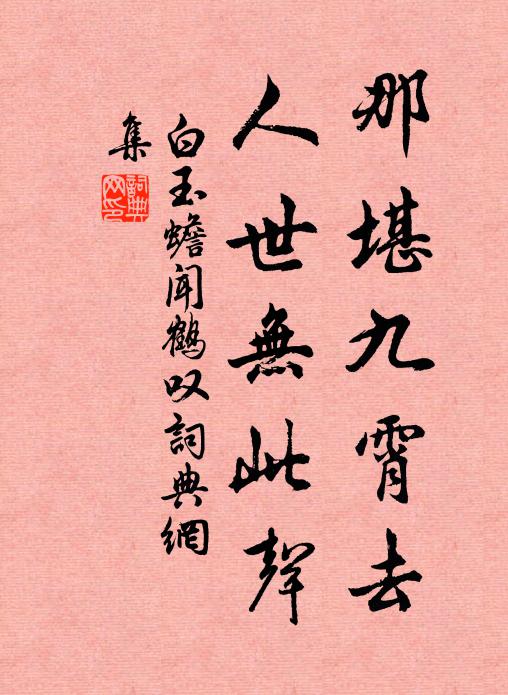 那堪九霄去
人世無此聲
白玉蟾闻鶴叹詞典網
集
詞典
网印